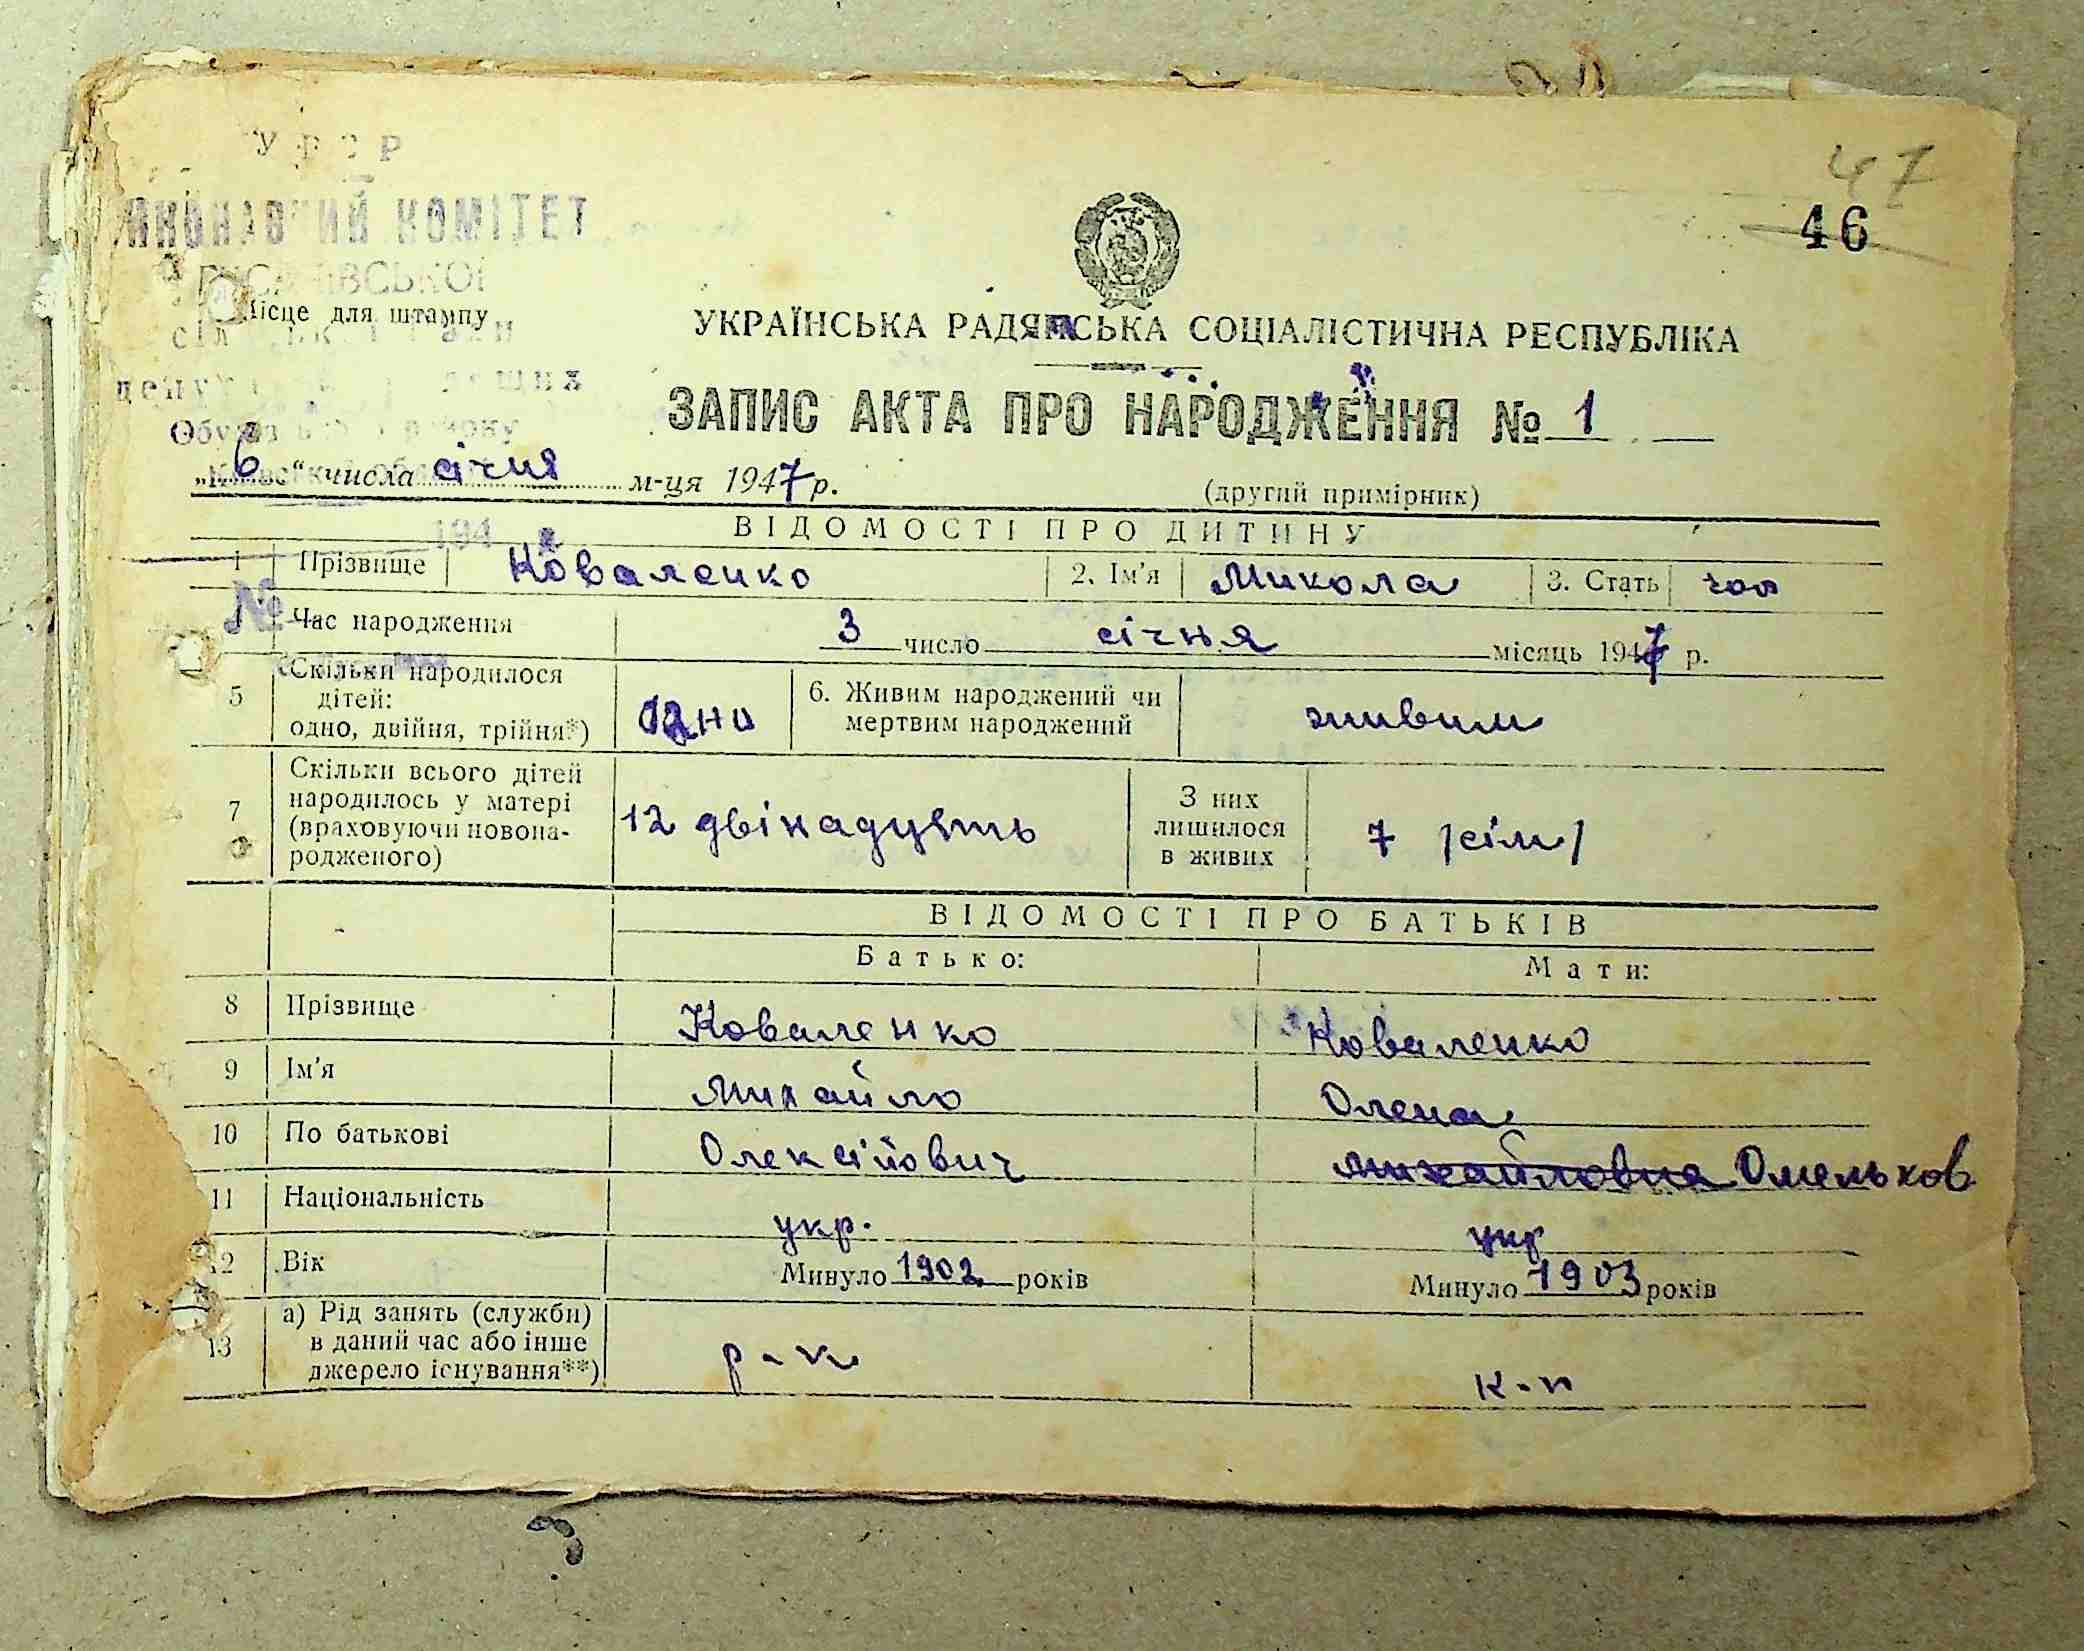 УРСР
47
ВИКОНАВЧИЙ КОМІТЕТ
46
Місце для штампу
УКРАЇНСЬКА РАДЯНСЬКА СОЦІАЛІСТИЧНА РЕСПУБЛІКА
ЗАПИС АКТА ПРО НАРОДЖЕННЯ № 1
„6“ числа січня м-ця 1947 р.
(другий примірник)
194
ВІДОМОСТІ ПРО ДИТИНУ
1 Прізвище Коваленко 2. Ім'я Микола 3. Стать чол
№ Час народження 3 число січня місяць 1947 р.
5 Скільки народилося дітей: одно, двійня, трійня*) одно 6. Живим народжений чи мертвим народжений живим
7 Скільки всього дітей народилось у матері (враховуючи новона-родженого) 12 двінадцять З них лишилося в живих 7 /сім/
ВІДОМОСТІ ПРО БАТЬКІВ
Батько: Мати:
8 Прізвище Коваленко Коваленко
9 Ім'я Михайло Олена
10 По батькові Олексійович Михайловна Омельков
11 Національність укр. укр
12 Вік Минуло 1902 років Минуло 1903 років
13 а) Рід занять (служби) в даний час або інше джерело існування**) р-к к-п